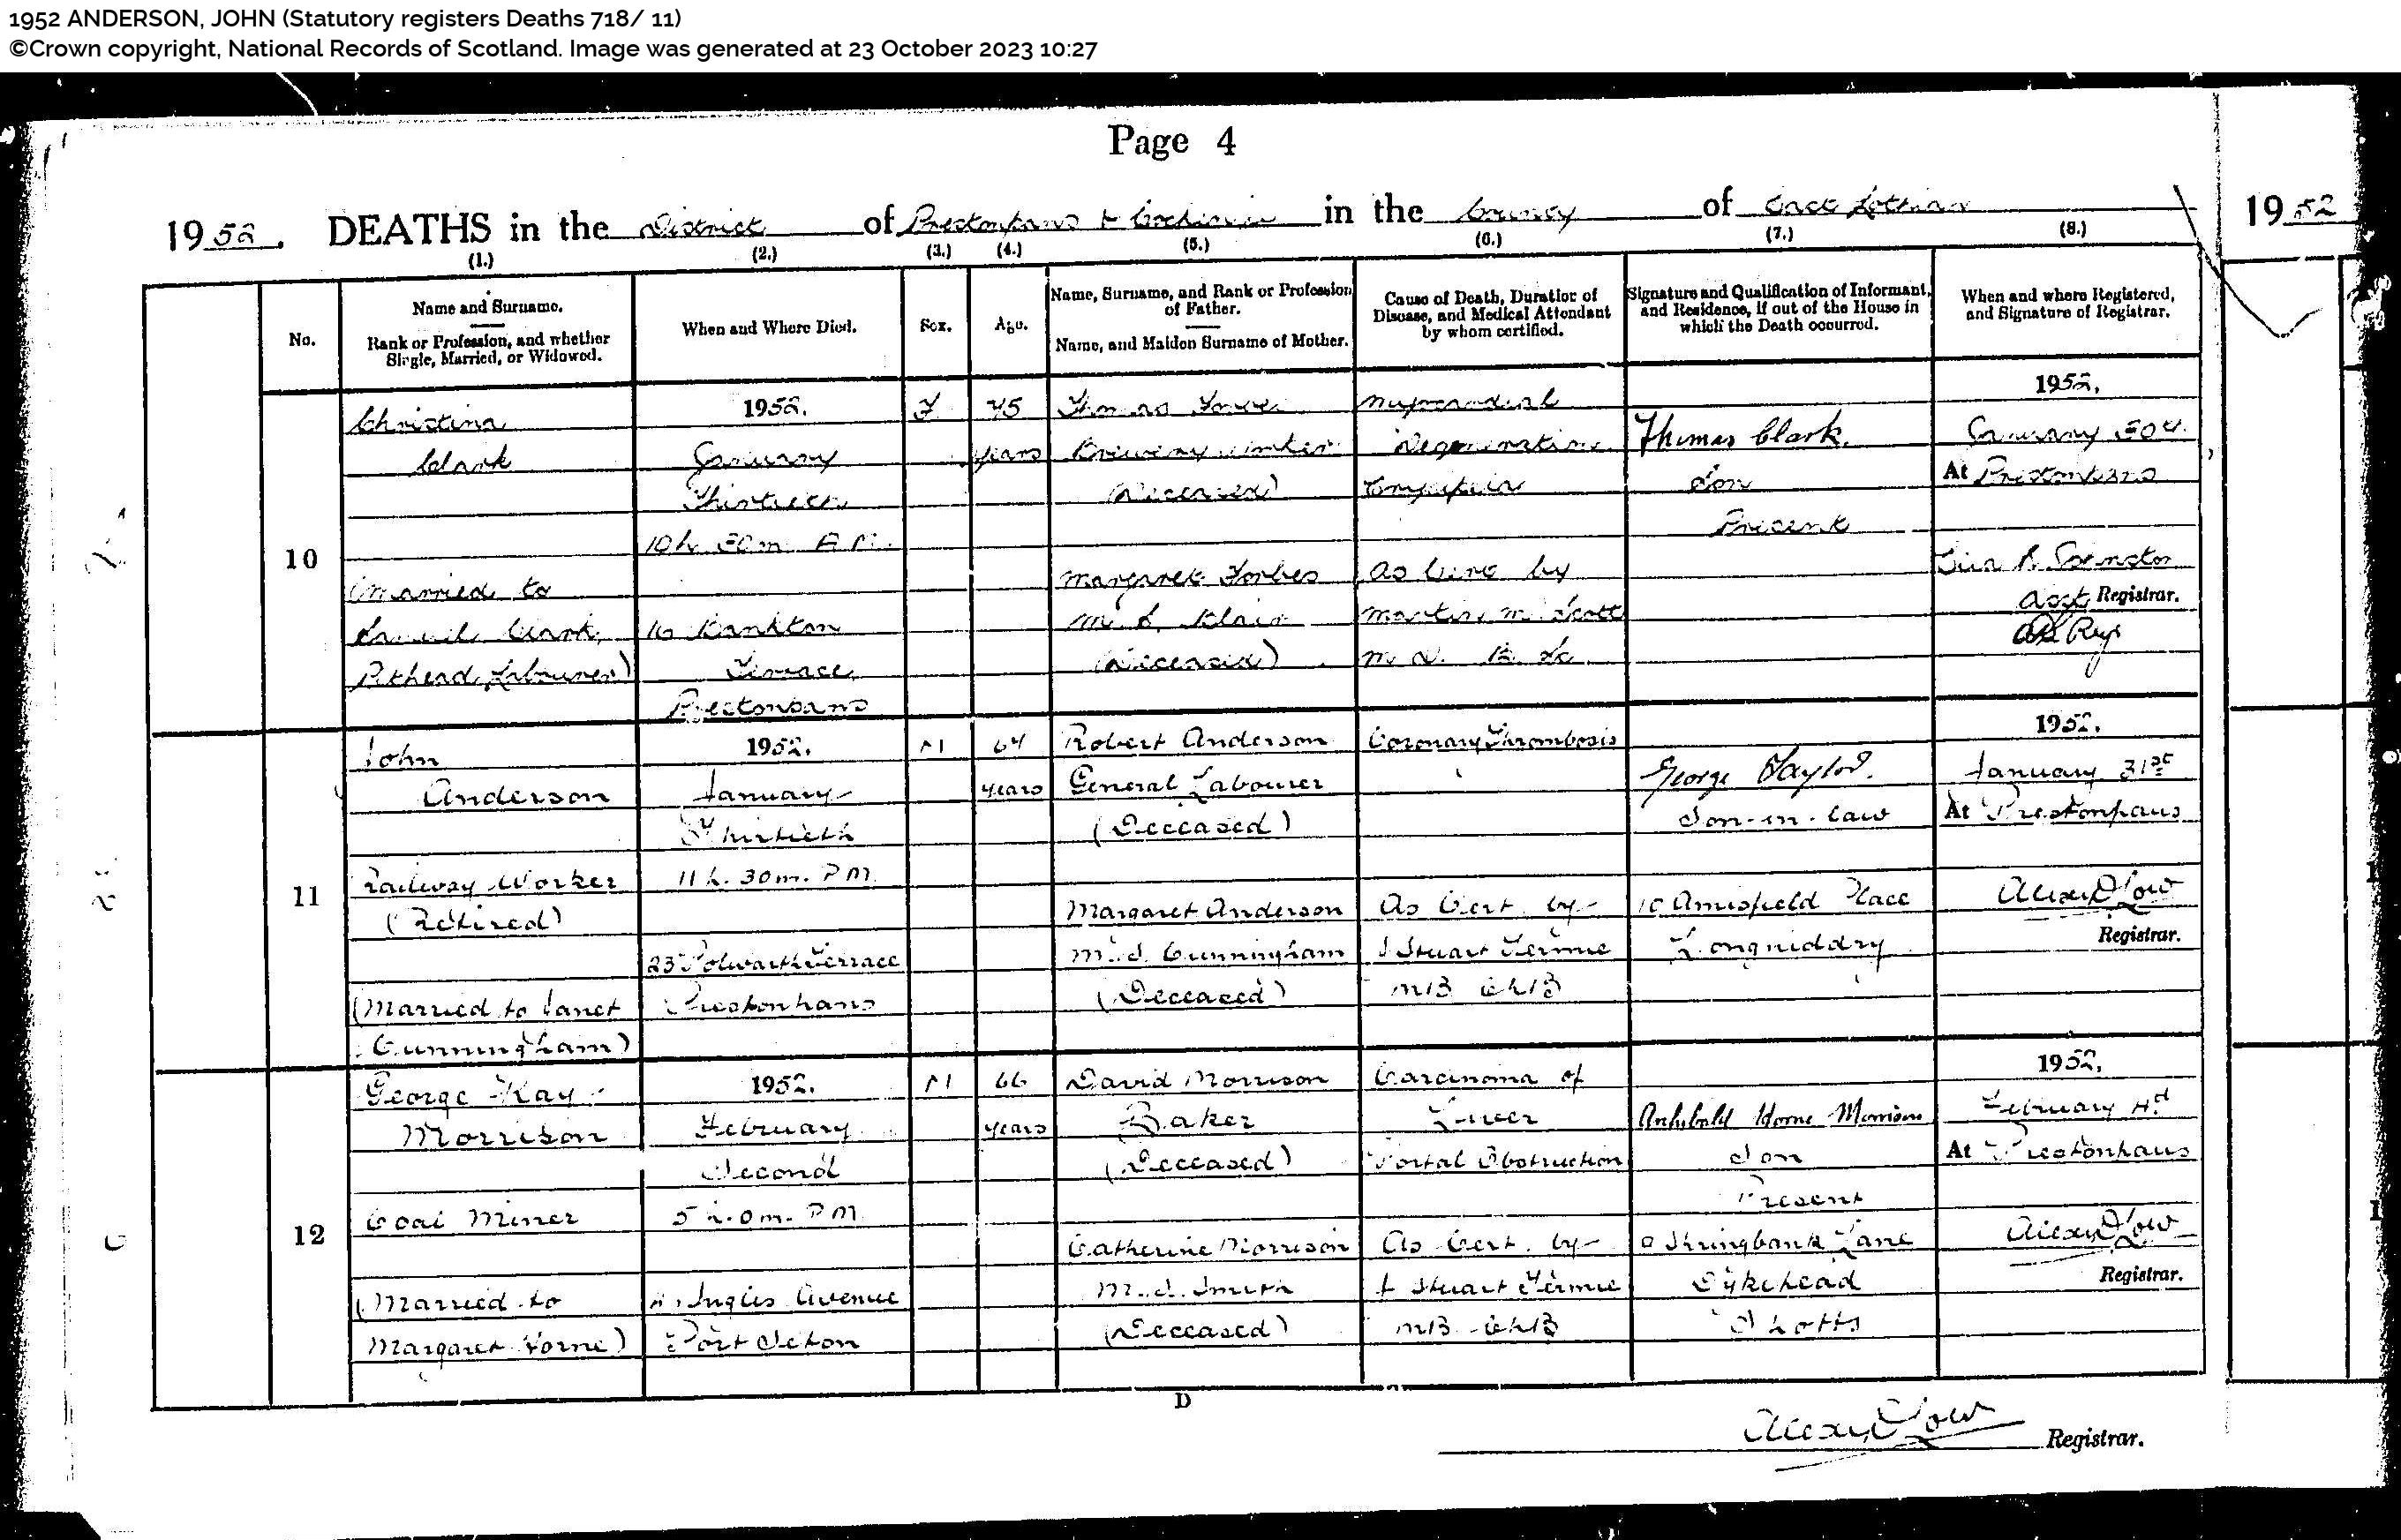 1952 ANDERSON, JOHN (Statutory registers Deaths 718/ 11)
©Crown copyright, National Records of Scotland. Image was generated at 23 October 2023 10:27
Page 4
1952. DEATHS in the District of Prestonpans & in the County of East Lothian
1952
(1.) (2.) (3.) (4.) (5.) (6.) (7.) (8.)
No.
Name and Surname.
Rank or Profession, and whether
Single, Married, or Widowed.
When and Where Died.
Sex.
Age.
Name, Surname, and Rank or Profession
of Father.
Name, and Maiden Surname of Mother.
Cause of Death, Duration of
Disease, and Medical Attendant
by whom certified.
Signature and Qualification of Informant,
and Residence, if out of the House in
which the Death occurred.
When and where Registered,
and Signature of Registrar.
10
Christina
Clark
(Married to
Samuel Clark,
Pithead Labourer)
1952.
January
Thirtieth
10 h. 30 m. A.M.
16 Bankton
Terrace
Prestonpans
F
75
years
Thomas
Brewery Worker
(Deceased)
Margaret Forbes
M. S. Blair
(Deceased)
Myocardial
Degeneration
As Cert by
Martin M. Scott
M.D. B.Sc.
Thomas Clark.
Son
Present
1952.
January 30th
At Prestonpans
Asst Registrar.
11
John
Anderson
Railway Worker
(Retired)
(Married to Janet
Cunningham)
1952.
January
Thirtieth
11 h. 30 m. P.M.
23 Polwarth Terrace
Prestonpans
M
64
years
Robert Anderson
General Labourer
(Deceased)
Margaret Anderson
M.S. Cunningham
(Deceased)
Coronary Thrombosis
As Cert. by
J Stuart Fermie
MB ChB
George Taylor.
Son-in-law
10 Amisfield Place
Longniddry
1952.
January 31st
At Prestonpans
Alex Low
Registrar.
12
George Kay
Morrison
Coal Miner
(Married to
Margaret Horne)
1952.
February
Second
5 h. 0 m. P.M.
Inglis Avenue
Port Seton
M
66
years
David Morrison
Baker
(Deceased)
Catherine Morrison
M.S. Smith
(Deceased)
Carcinoma of
Liver
Portal Obstruction
As Cert. by
J Stuart Fermie
MB ChB
Archibald Horne Morrison
Son
Present
Springbank Lane
Dykehead
Shotts
1952.
February 4th
At Prestonpans
Alex Low
Registrar.
D
Alex Low Registrar.